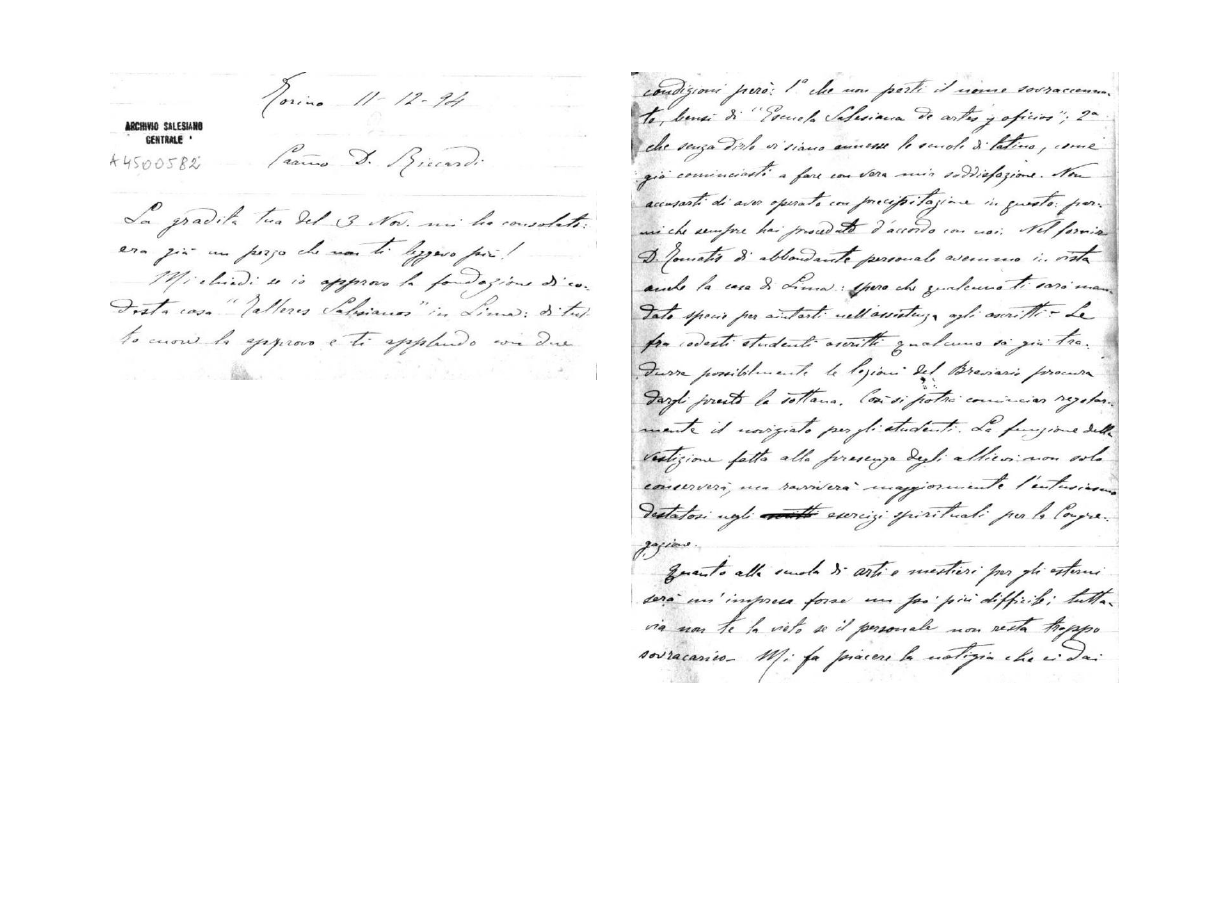 Torino 11-12-94
ARCHIVIO SALESIANO
CENTRALE
A4500582
Carmo D. Riccardi
La gradita tua del 3 Nov. mi ha consolato:
era già un pezzo che non ti leggevo più!
Mi chiedi se io approvo la fondazione di co-
desta casa "Talleres Salesianos" in Lima: di tut-
to cuore la approvo e ti applaudo con due
condizioni però: 1º che non porti il nome sovraccenna-
to, bensì di "Escuela Salesiana de artes y oficios"; 2a
che senza dirlo vi siano annesse le scuole di latino, come
già cominciasti a fare con vera mia soddisfazione. Non
accusarti di aver operato con precipitazione in questo: par-
mi che sempre hai proceduto d'accordo con noi. Nel fornir
D. Tomatis di abbondante personale avemmo in vista
anche la casa di Lima: spero che qualcuno ti sarà man
dato specie per aiutarti nell'assistenza agli ascritti - Se
fra codesti studenti ascritti qualcuno sa già tra-
durre possibilmente le lezioni del Breviario procura
dargli presto la sottana. Così si potrà cominciar regolar-
mente il noviziato per gli studenti. La funzione della
vestizione fatta alla presenza degli allievi non solo
conserverà, ma ravviverà maggiormente l'entusiasmo
destatosi negli esercizi spirituali per la Congre-
gazione.
Quanto alla scuola di arti e mestieri per gli esterni
sarà un'impresa forse un po' più difficile; tutta-
via non te la vieto se il personale non resta troppo
sovracarico - Mi fa piacere la notizia che ci dai